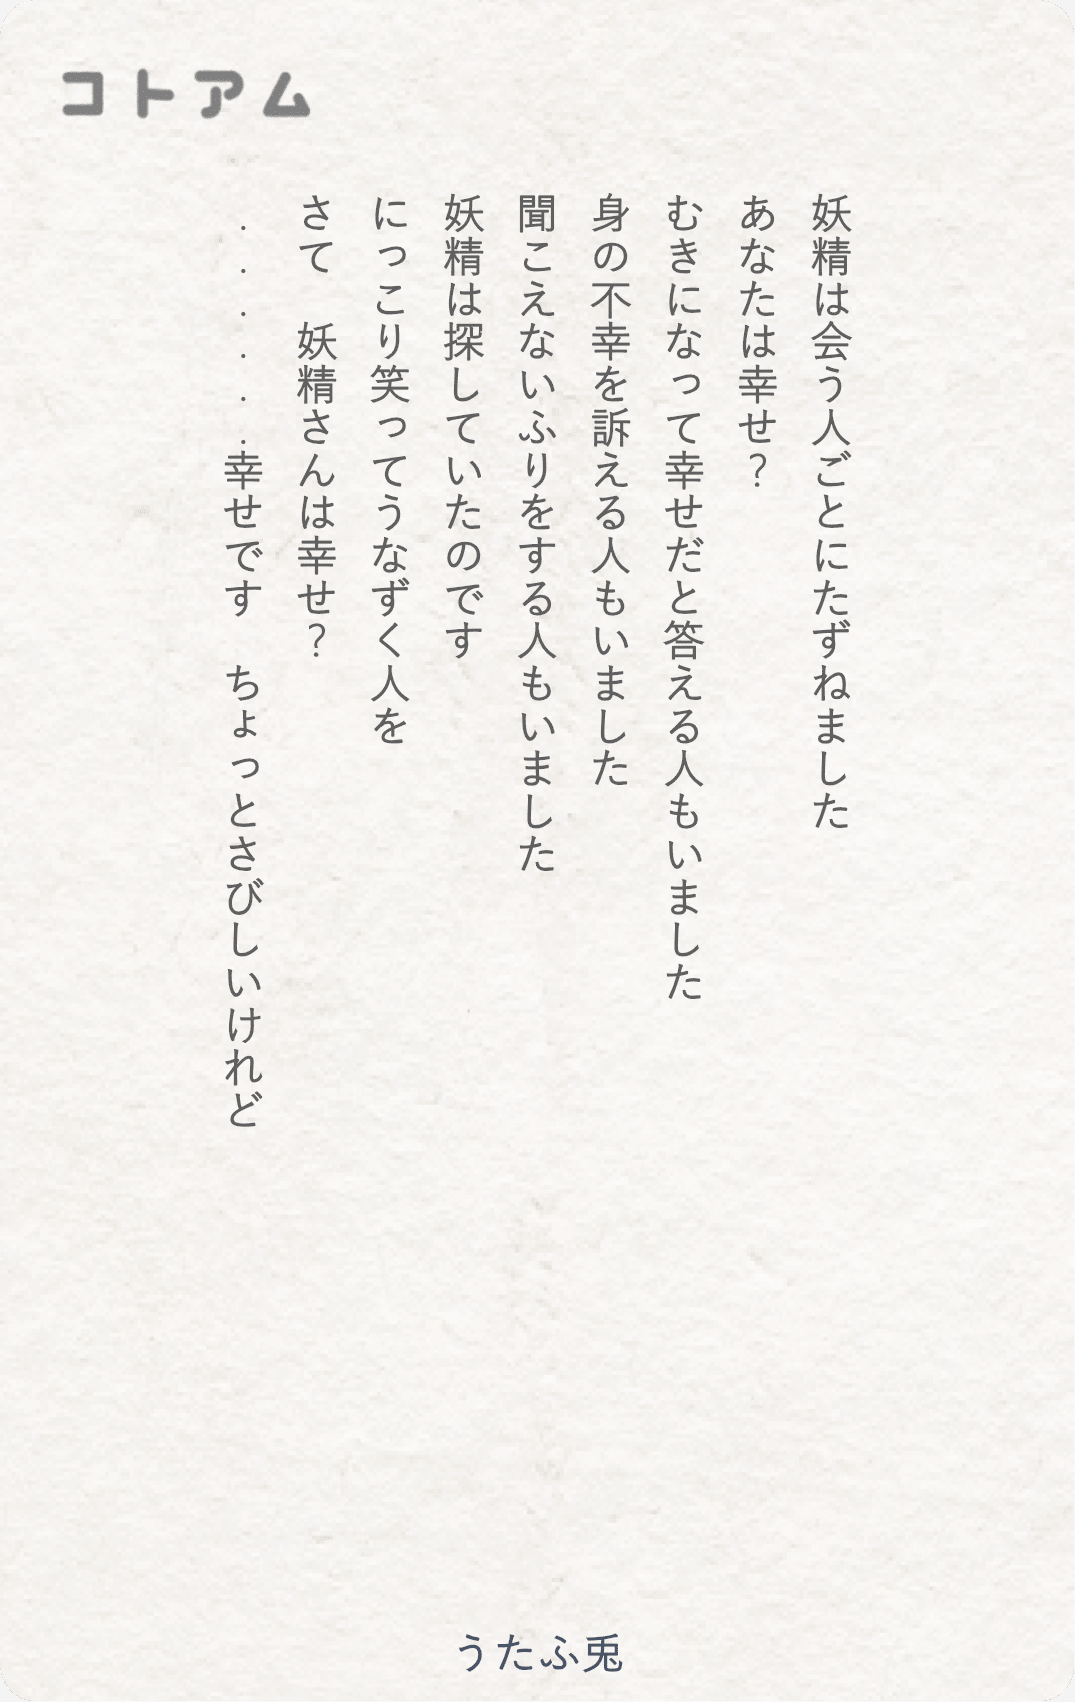 コトアム
妖精は会う人ごとにたずねました
あなたは幸せ？
むきになって幸せだと答える人もいました
身の不幸を訴える人もいました
聞こえないふりをする人もいました
妖精は探していたのです
にっこり笑ってうなずく人を
さて　妖精さんは幸せ？
．．．．．．幸せです　ちょっとさびしいけれど
うたふ兎